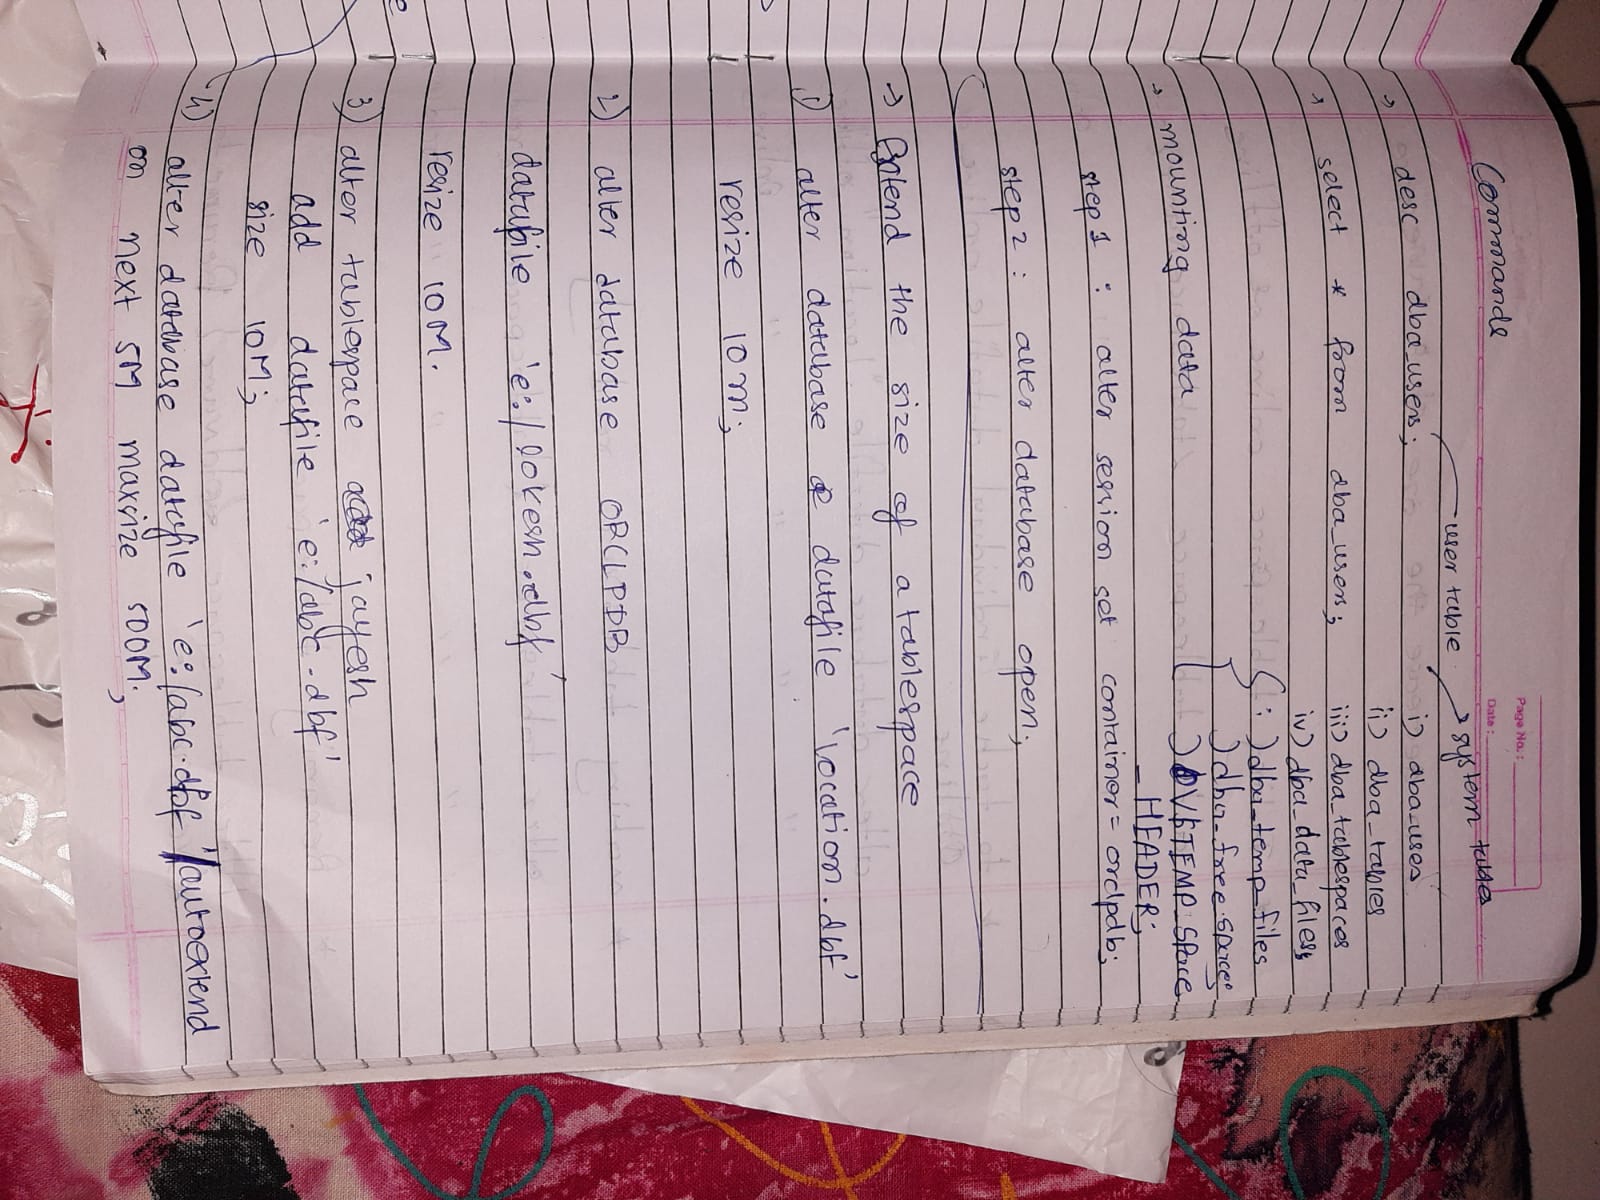 Page No.:
Date:
Commands
user table
system tables
→ desc dba_users;
i) dba_uses
ii) dba_tables
→ select * from dba_users;
iii) dba_tablespaces
iv) dba_data_files
) dba_temp_files
) dba_free_spaces
→ mounting data
) V$TEMP_SPACE
_HEADER;
step 1 : alter session set container = orclpdb;
step 2 : alter database open;
→ Extend the size of a tablespace
1) alter database datafile 'location.dbf'
resize 10m;
2) alter database ORCLPDB
datafile 'e:/lokesh.dbf'
resize 10M.
3) alter tablespace jayesh
add datafile 'e:/abc.dbf'
size 10M;
4) alter database datafile 'e:/abc.dbf' autoextend
on next 5M maxsize 500M;